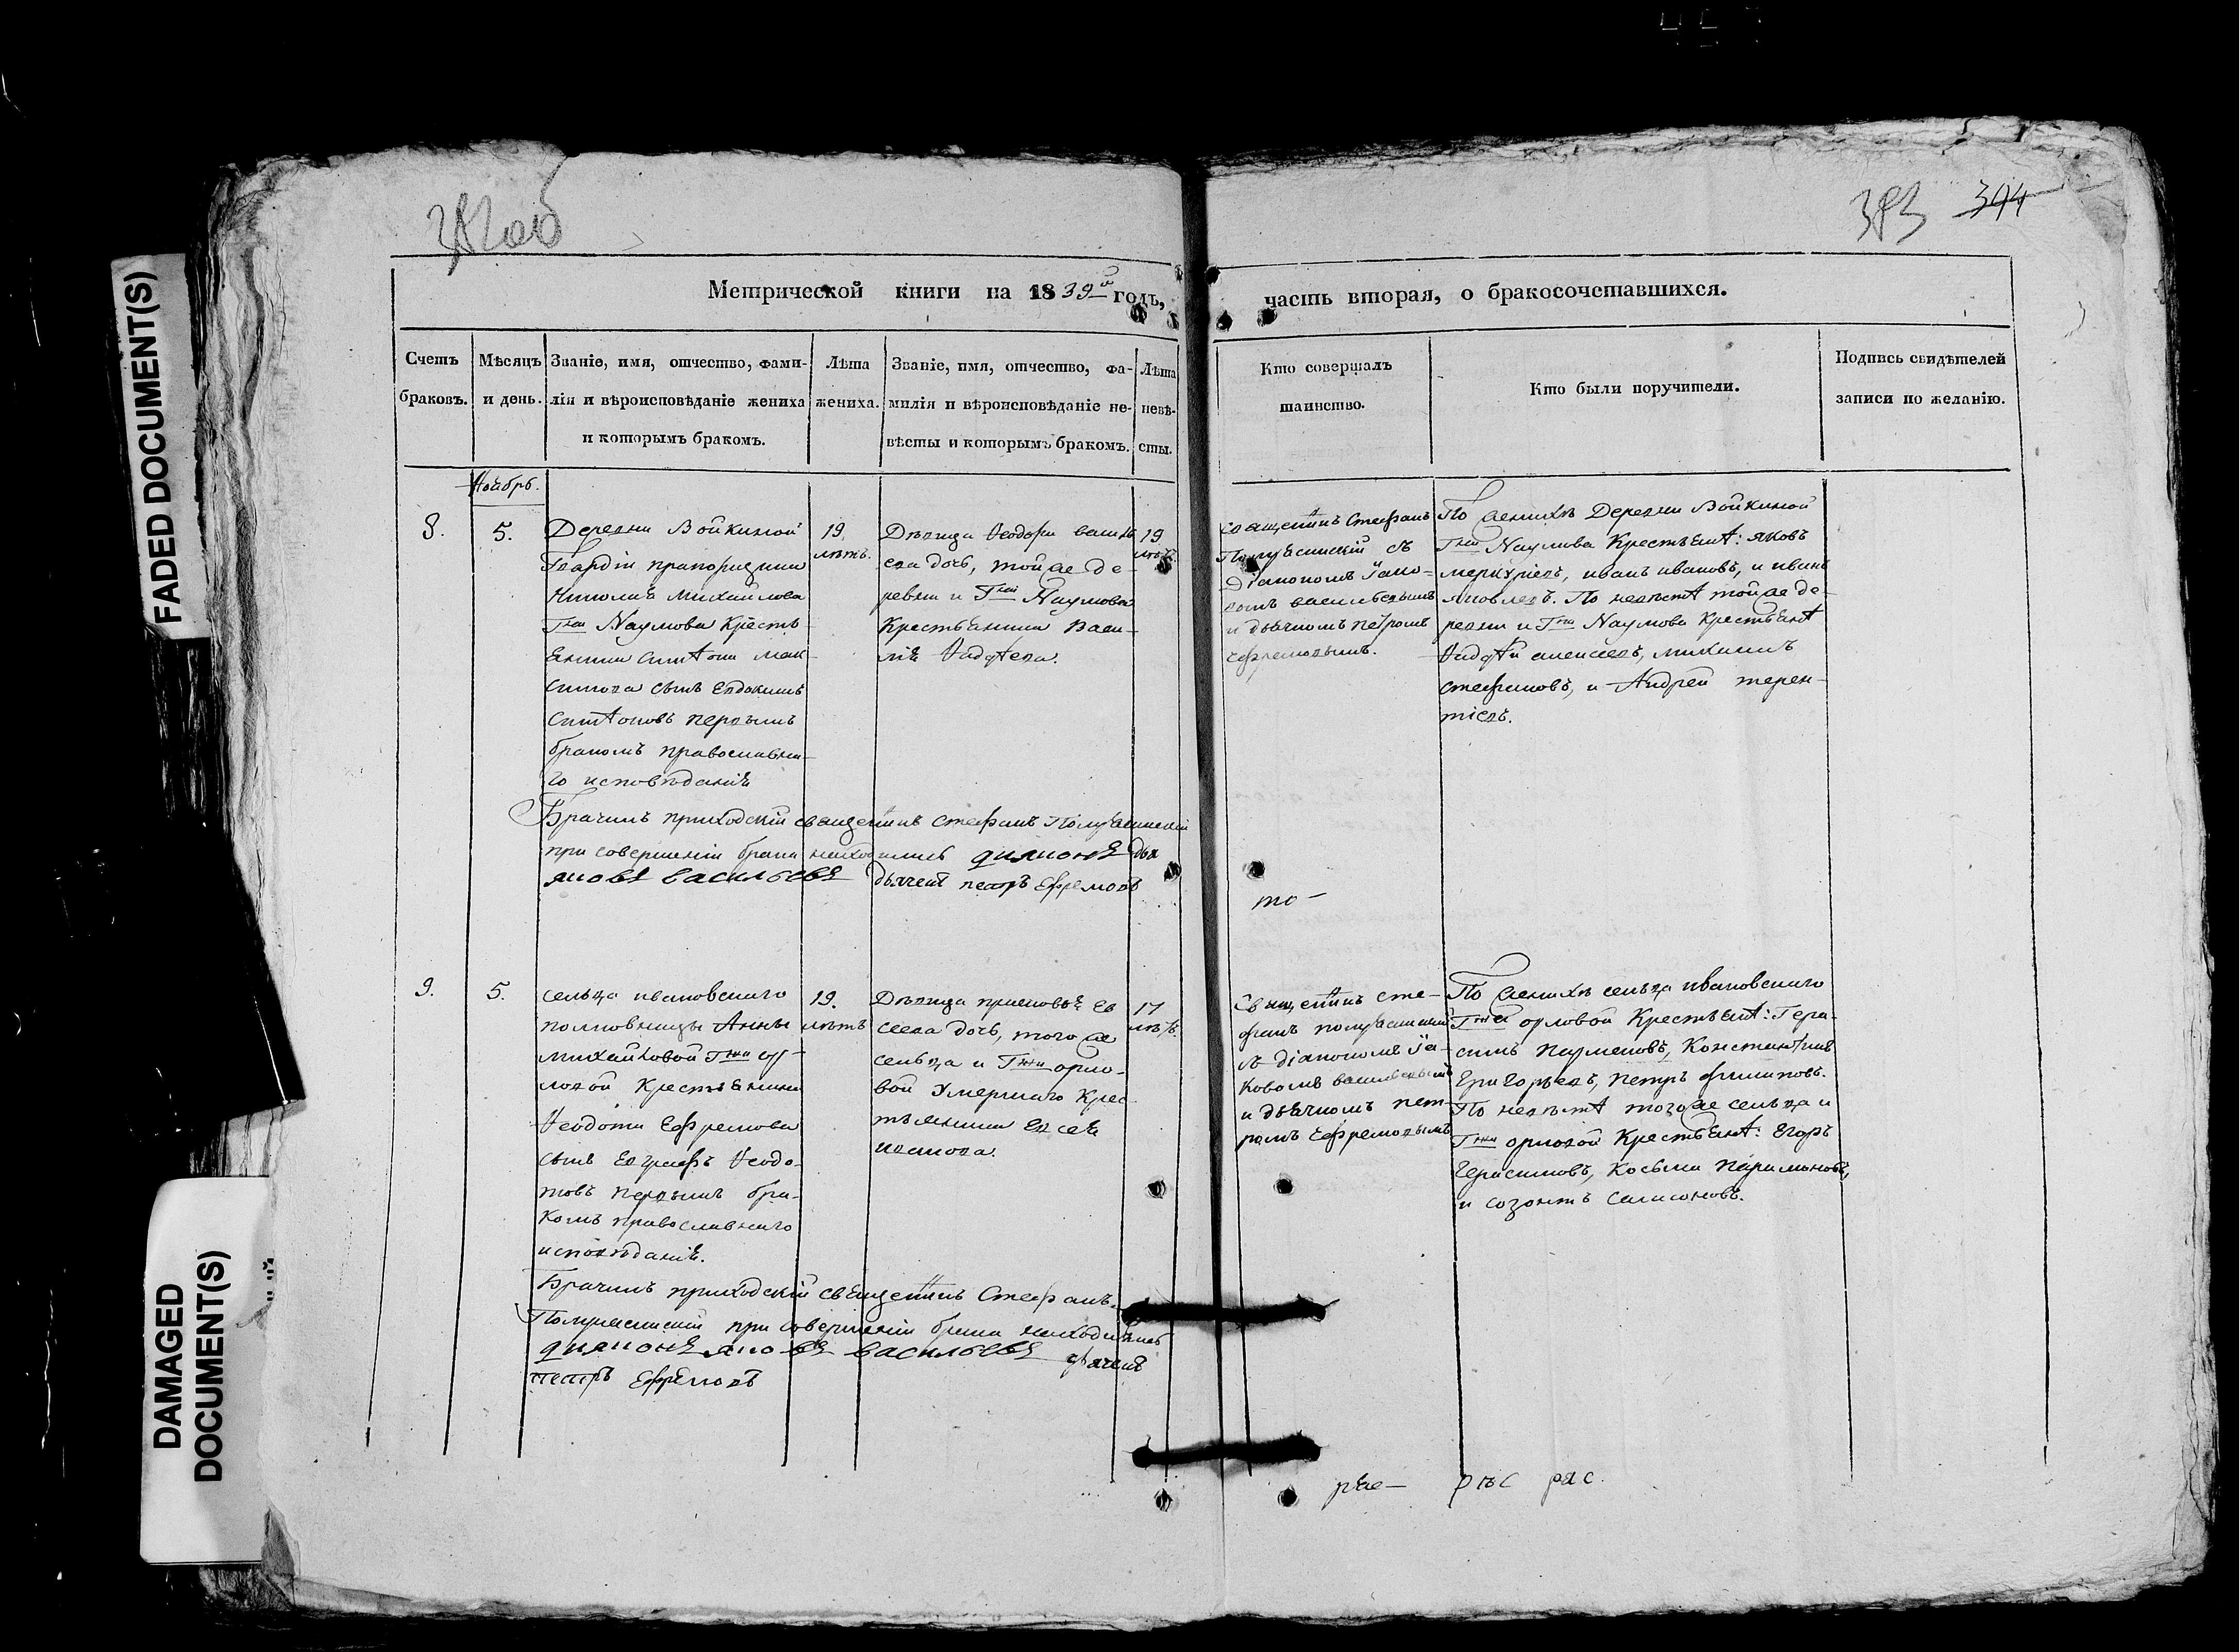 FADED DOCUMENT(S)
DAMAGED
DOCUMENT(S)
383 394
Метрической книги на 1839й годъ,
часть вторая, о бракосочетавшихся.
Счетъ
браковъ.
Мѣсяцъ
и день.
Званіе, имя, отчество, фами-
лія и вѣроисповѣданіе жениха
и которымъ бракомъ.
Лѣта
жениха.
Званіе, имя, отчество, фа-
милія и вѣроисповѣданіе не-
вѣсты и которымъ бракомъ.
Лѣта
невѣ-
сты.
Кто совершалъ
таинство.
Кто были поручители.
Подпись свидѣтелей
записи по желанію.
Ноябрь.
8.
5.
Деревни Войкиной
Гвардіи прапорщика
Николая Михайлова
Гна Наумова Кресть
янина Симѣона Мак-
симова сынъ Евдокимъ
Симѣоновъ первымъ
бракомъ православна-
го исповѣданія
19.
лѣтъ.
Дѣвица Ѳеодора Васил
ева дочь, той же де-
ревни и Гна Наумова
Крестьянина Васи-
лія Ѳадѣева.
19
лѣтъ.
Священникъ Стефанъ
съ
Діакономъ Іако-
вомъ Васильевымъ
и дьячкомъ Петромъ
Ефремовымъ.
По женихѣ Деревни Войкиной
Гна Наумова Крестьянѣ: Яковъ
Меркуріевъ, Иванъ Ивановъ, и Иванъ
Яковлевъ. По невѣстѣ той же де-
ревни и Гна Наумова Крестьянѣ
Ѳадѣй Алексеевъ, Михаилъ
Стефановъ, и Андрей Терен-
тіевъ.
Брачилъ приходскій священникъ Стефанъ
при совершеніи брака находились диаконъ
яковъ васильевъ дьячекъ петръ Ефремовъ
то-
9.
5.
Сельца Ивановскаго
полковницы Анны
Михайловой Гжи Ор-
ловой Крестьянина
Ѳеодота Ефремова
сынъ Евграфъ Ѳеодо-
товъ первымъ бра-
комъ православнаго
исповѣданія.
19.
лѣтъ
Дѣвица Прасковья Ев
сеева дочь, того же
сельца и Гжи Орло-
вой Умершаго Крес-
тьянина Евсея
Иванова.
17
лѣтъ.
Священникъ Сте-
фанъ
съ Діакономъ Іа-
ковомъ Васильевымъ
и дьячкомъ Пет-
ромъ Ефремовымъ
По женихѣ сельца Ивановскаго
Гжи Орловой Крестьянѣ: Гера-
симъ Парменовъ, Константинъ
Григорьевъ, Петръ Филиповъ.
По невѣстѣ того же сельца и
Гжи Орловой Крестьянѣ: Егоръ
Герасимовъ, Косьма Парамоновъ,
и Созонтъ Самсоновъ.
Брачилъ приходскій священникъ Стефанъ
при совершеніи брака находились
диаконъ яковъ васильевъ дьячекъ
петръ Ефремовъ